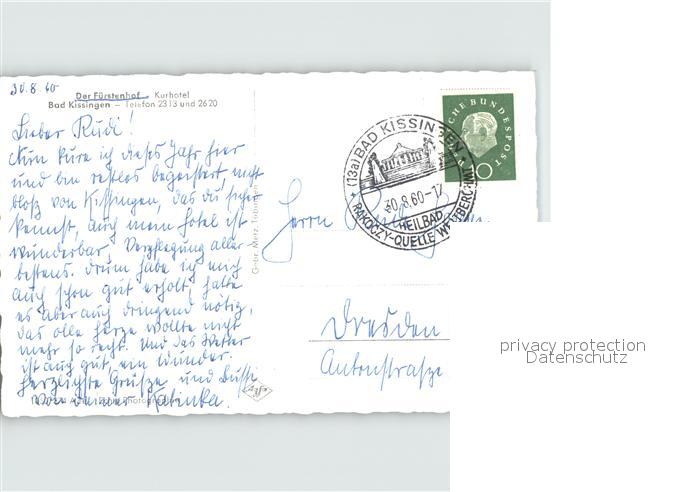 30.8.60
Der Fürstenhof Kurhotel
Bad Kissingen – Telefon 2313 und 2620
Lieber Rudi!
Nun kure ich dieses Jahr hier
und bin restlos begeistert, nicht
bloß von Kissingen, das du sicher
kennst, auch mein Hotel ist
wunderbar, Verpflegung aller-
bestens. Drum habe ich mich
auch schon gut erholt, hatte
es aber auch dringend nötig,
das olle Herze wollte nicht
mehr so recht. Und das Wetter
ist auch gut, ein Wunder.
Herzlichste Grüsze und Bussi
von deiner Kalinka.
Gebr. Metz, Tübingen
(13a) BAD KISSINGEN
30.8.60-17
HEILBAD
RAKOCZY-QUELLE
DEUTSCHE BUNDESPOST
10
Herrn
Dresden
Antonstrasze
privacy protection
Datenschutz